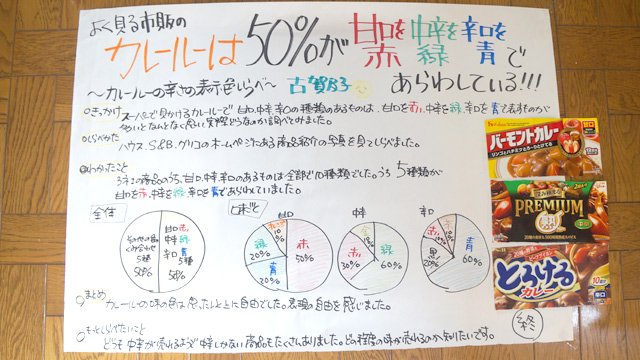 よく見る市販の
カレールーは50%が甘口を赤 中辛を緑 辛口を青で
あらわしている!!!
〜カレールーの辛さの表示色しらべ〜
○きっかけ スーパーで見かけるカレールーで甘口、中辛、辛口の種類のあるものは、甘口を赤、中辛を緑、辛口を青で表すものが
多いとなんとなく思い、実際どうなのか調べてみました。
○しらべかた ハウス、S&B、グリコのホームページにある商品紹介の写真を見てしらべました。
○わかったこと
3社の商品のうち、甘口、中辛、辛口のあるものは全部で10種類でした。うち5種類が
甘口を赤、中辛を緑、辛口を青であらわしていました。
全体
その他の色の
くみ合わせ
5種
50%
甘口 赤
中辛 緑
辛口 青
5種
50%
甘口
赤
50%
青
20%
緑
20%
10%
中辛
緑
60%
赤
30%
10%
辛口
青
60%
20%
○まとめ
カレールーの味の色は思ったいじょうに自由でした。表現の自由を感じました。
○もっとしらべたいこと
どうも中辛が売れるようで中辛しかない商品もたくさんありました。どの程度の味が売れるのか知りたいです。
終
バーモントカレー
リンゴとハチミツとろ〜りとけてる
甘口
PREMIUM
とろける
カレー
辛口